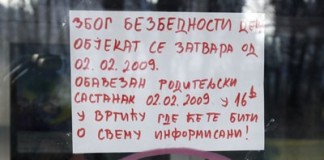 ЗБОГ БЕЗБЕДНОСТИ
ОБЈЕКАТ СЕ ЗАТВАРА ОД
02.02.2009.
ОБАВЕЗАН РОДИТЕЉСКИ
САСТАНАК 02.02.2009 У 16h
У ВРТИЋУ ГДЕ ЋЕТЕ БИТИ
О СВЕМУ ИНФОРМИСАНИ!